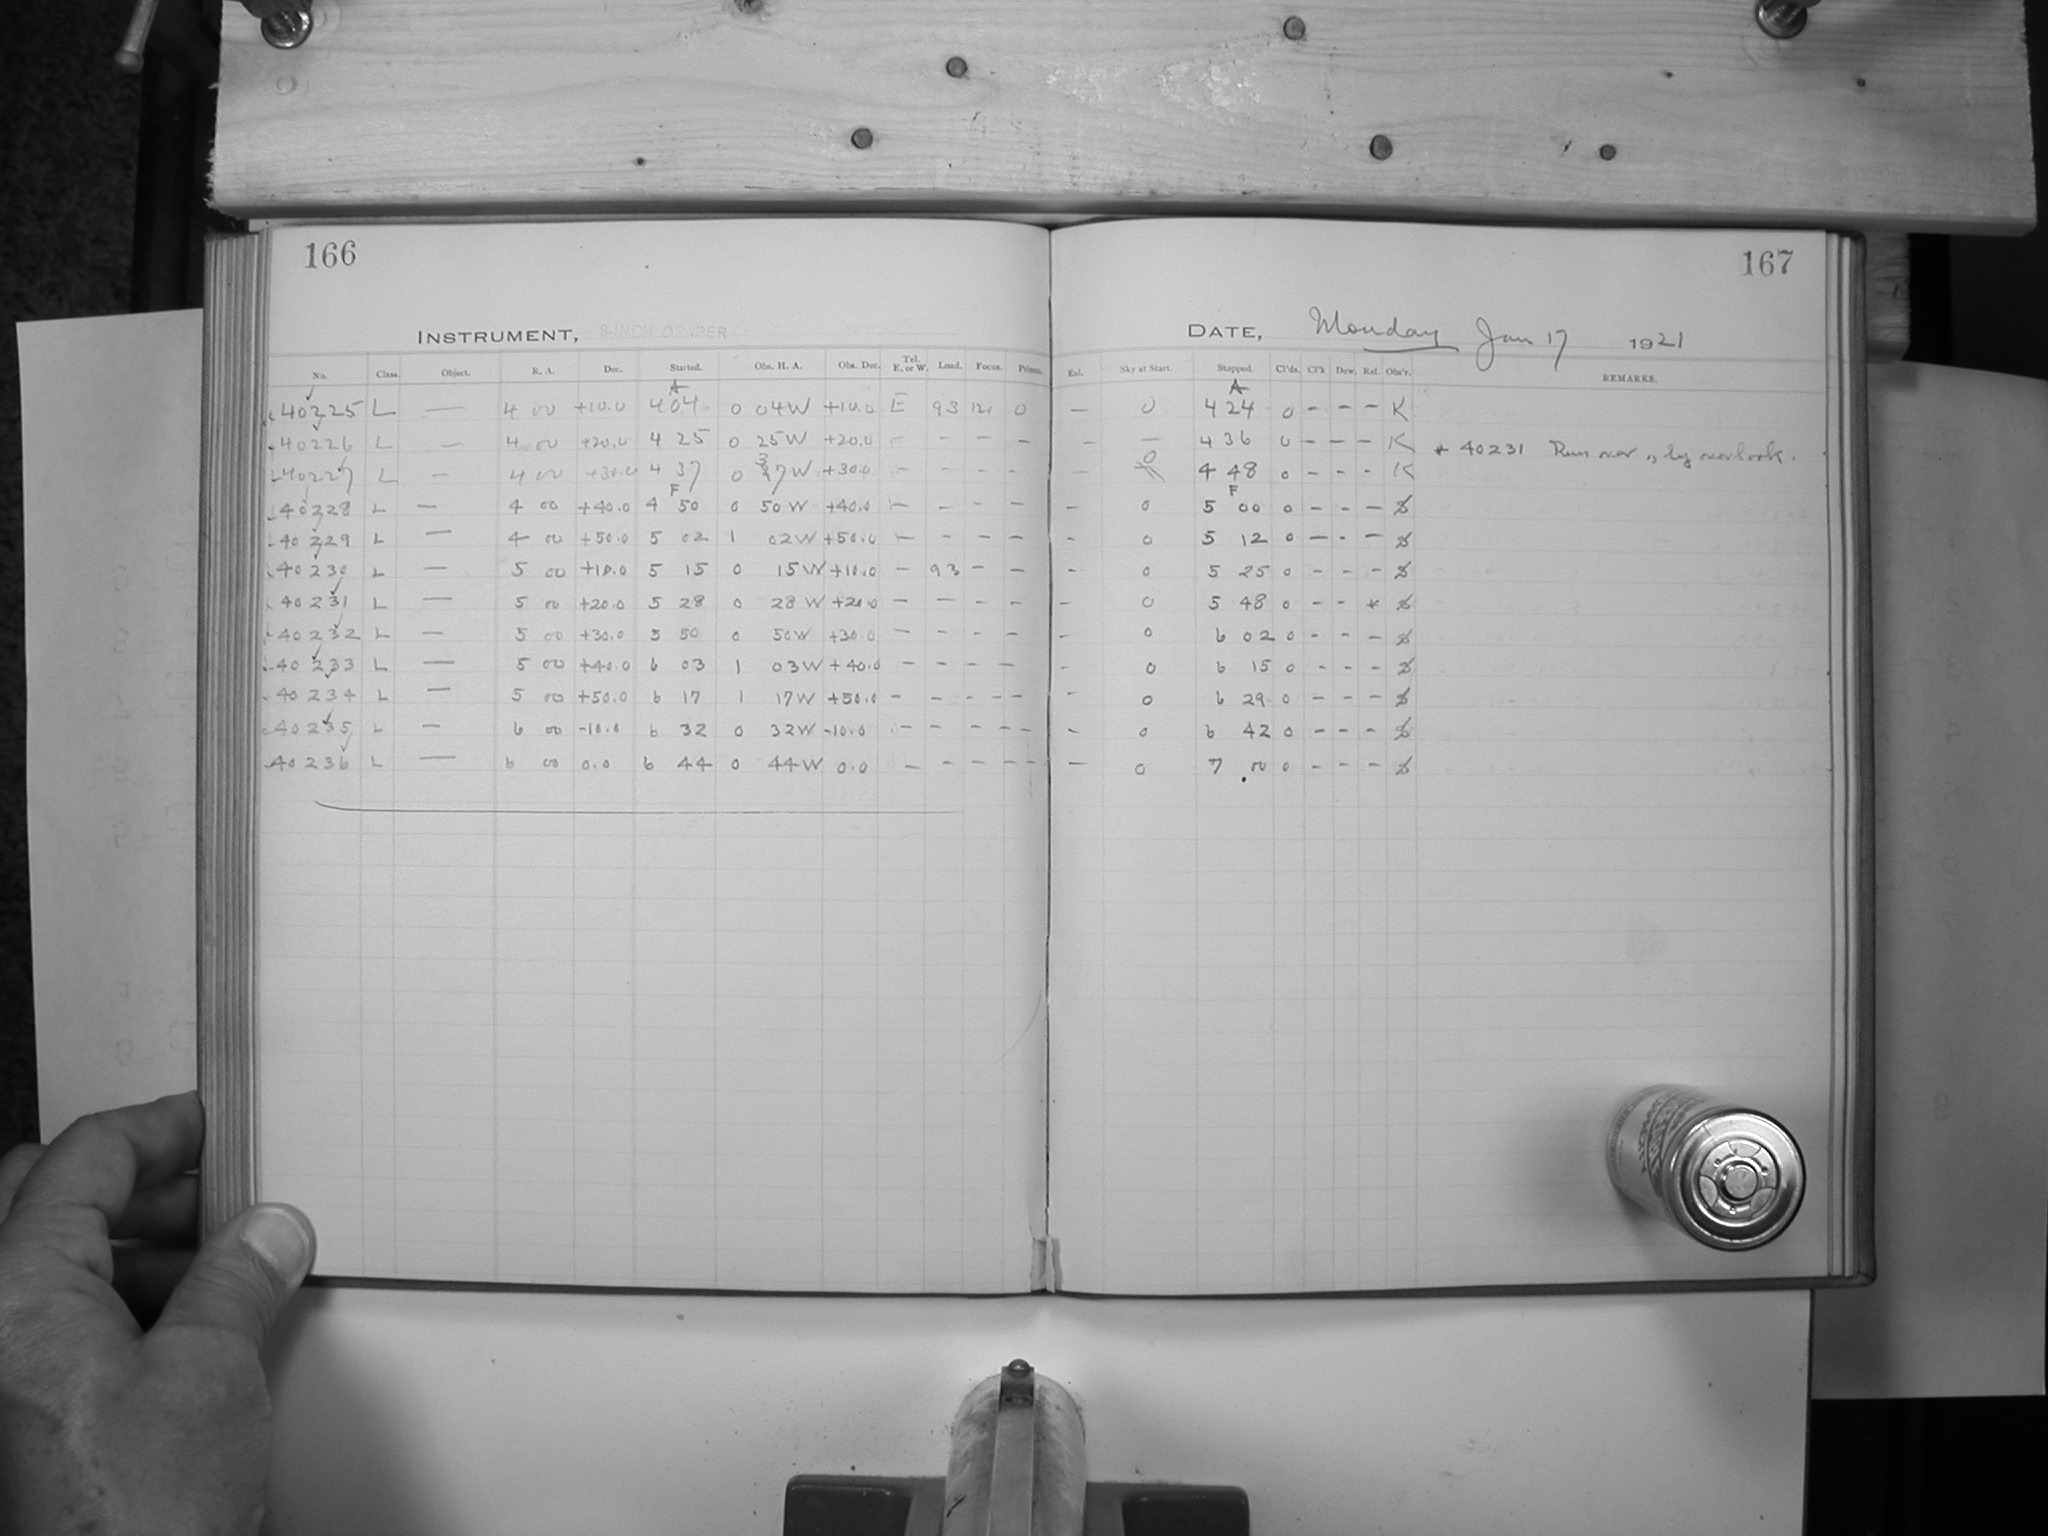 166
167
INSTRUMENT, 8-INCH DRAPER
DATE, Monday Jan 17 1921
No. Class. Object. R. A. Dec. Started. Obs. H. A. Obs. Dec. Tel. E. or W. Load. Focus. Prisms. Exl. Sky at Start. Stopped. Cl'ds. Cl'k Dew. Rel. Obs'r. REMARKS.
A A
40225 L — 4 00 +10.0 4 04 0 04W +10.0 E 93 121 0 — 0 4 24 0 - - - K
40226 L — 4 00 +20.0 4 25 0 25W +20.0 - - - - - — 4 36 0 - - - K * 40231 Run over by overlook.
40227 L — 4 00 +30.0 4 37 0 37W +30.0 - - - - — 0 4 48 0 - - - K
F F
40228 L — 4 00 +40.0 4 50 0 50W +40.0 - - - - - 0 5 00 0 - - - S
40229 L — 4 00 +50.0 5 02 1 02W +50.0 - - - - - 0 5 12 0 - - - S
40230 L — 5 00 +10.0 5 15 0 15W +10.0 - 93 - - - 0 5 25 0 - - - S
40231 L — 5 00 +20.0 5 28 0 28W +20.0 - - - - - 0 5 48 0 - - * S
40232 L — 5 00 +30.0 5 50 0 50W +30.0 - - - - - 0 6 02 0 - - - S
40233 L — 5 00 +40.0 6 03 1 03W +40.0 - - - - - 0 6 15 0 - - - S
40234 L — 5 00 +50.0 6 17 1 17W +50.0 - - - - - 0 6 29 0 - - - S
40235 L — 6 00 -10.0 6 32 0 32W -10.0 - - - - - 0 6 42 0 - - - S
40236 L — 6 00 0.0 6 44 0 44W 0.0 - - - - - 0 7 00 0 - - - S